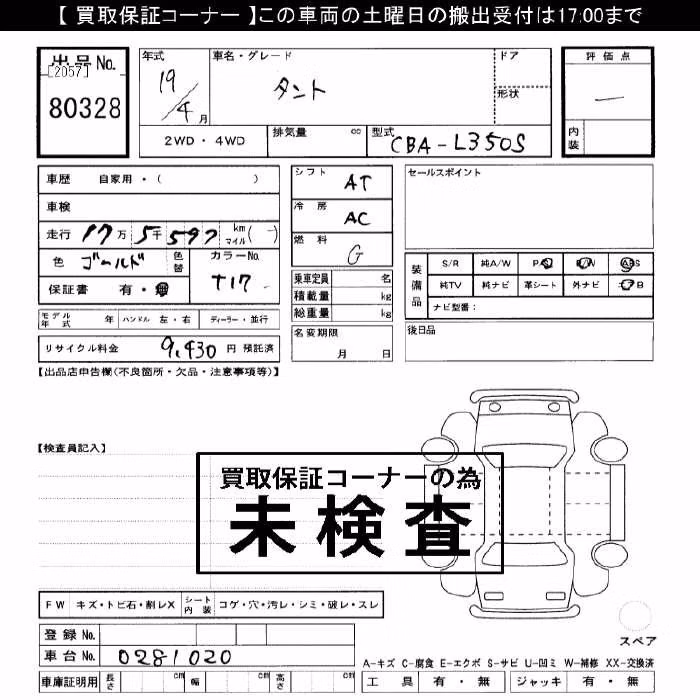 【 買取保証コーナー 】この車両の土曜日の搬出受付は17:00まで
出品No.
[2057]
80328
年式
19/4月
車名・グレード
タント
ドア
形状
2WD・4WD
排気量 cc
型式 CBA-L350S
評価点
—
内装
車歴 自家用・( )
車検
走行 17万5千597 km マイル(-)
色 ゴールド
色替
カラーNo.
T17
保証書 有・無
モデル年式 年
ハンドル 左・右
ディーラー・並行
リサイクル料金 9,430 円 預託済
シフト AT
冷房 AC
燃料 G
乗車定員 名
積載量 kg
総重量 kg
名変期限
月 日
セールスポイント
装備品
S/R 純A/W P/S P/W ABS
純TV 純ナビ 革シート 外ナビ エアB
ナビ型番:
後日品
【出品店申告欄(不良箇所・欠品・注意事項等)】
【検査員記入】
買取保証コーナーの為
未検査
FW キズ・トビ石・割レX
シート内装 コゲ・穴・汚レ・シミ・破レ・スレ
登録No.
車台No. 0281020
車庫証明用 長さ cm 幅 cm 高さ cm
スペア
A-キズ C-腐食 E-エクボ S-サビ U-凹ミ W-補修 XX-交換済
工具 有・無 ジャッキ 有・無